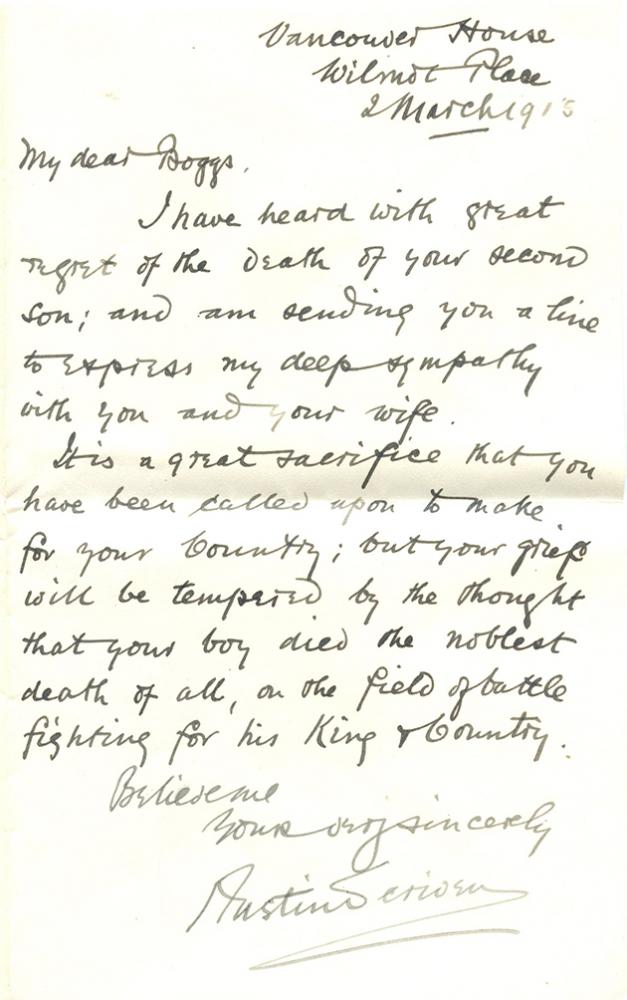 Vancouver House
Wilmot Place
2 March 1915
My dear Boggs,
I have heard with great
regret of the death of your second
son; and am sending you a line
to express my deep sympathy
with you and your wife.
It is a great sacrifice that you
have been called upon to make
for your Country; but your grief
will be tempered by the thought
that your boy died the noblest
death of all, on the field of battle
fighting for his King & Country.
Believe me
Yours very sincerely
Austin Scriven